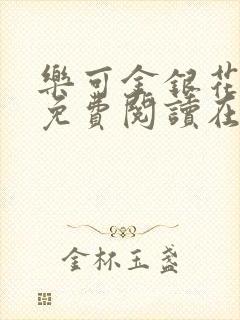 樂可金銀花
免費閱讀在
金杯玉盞